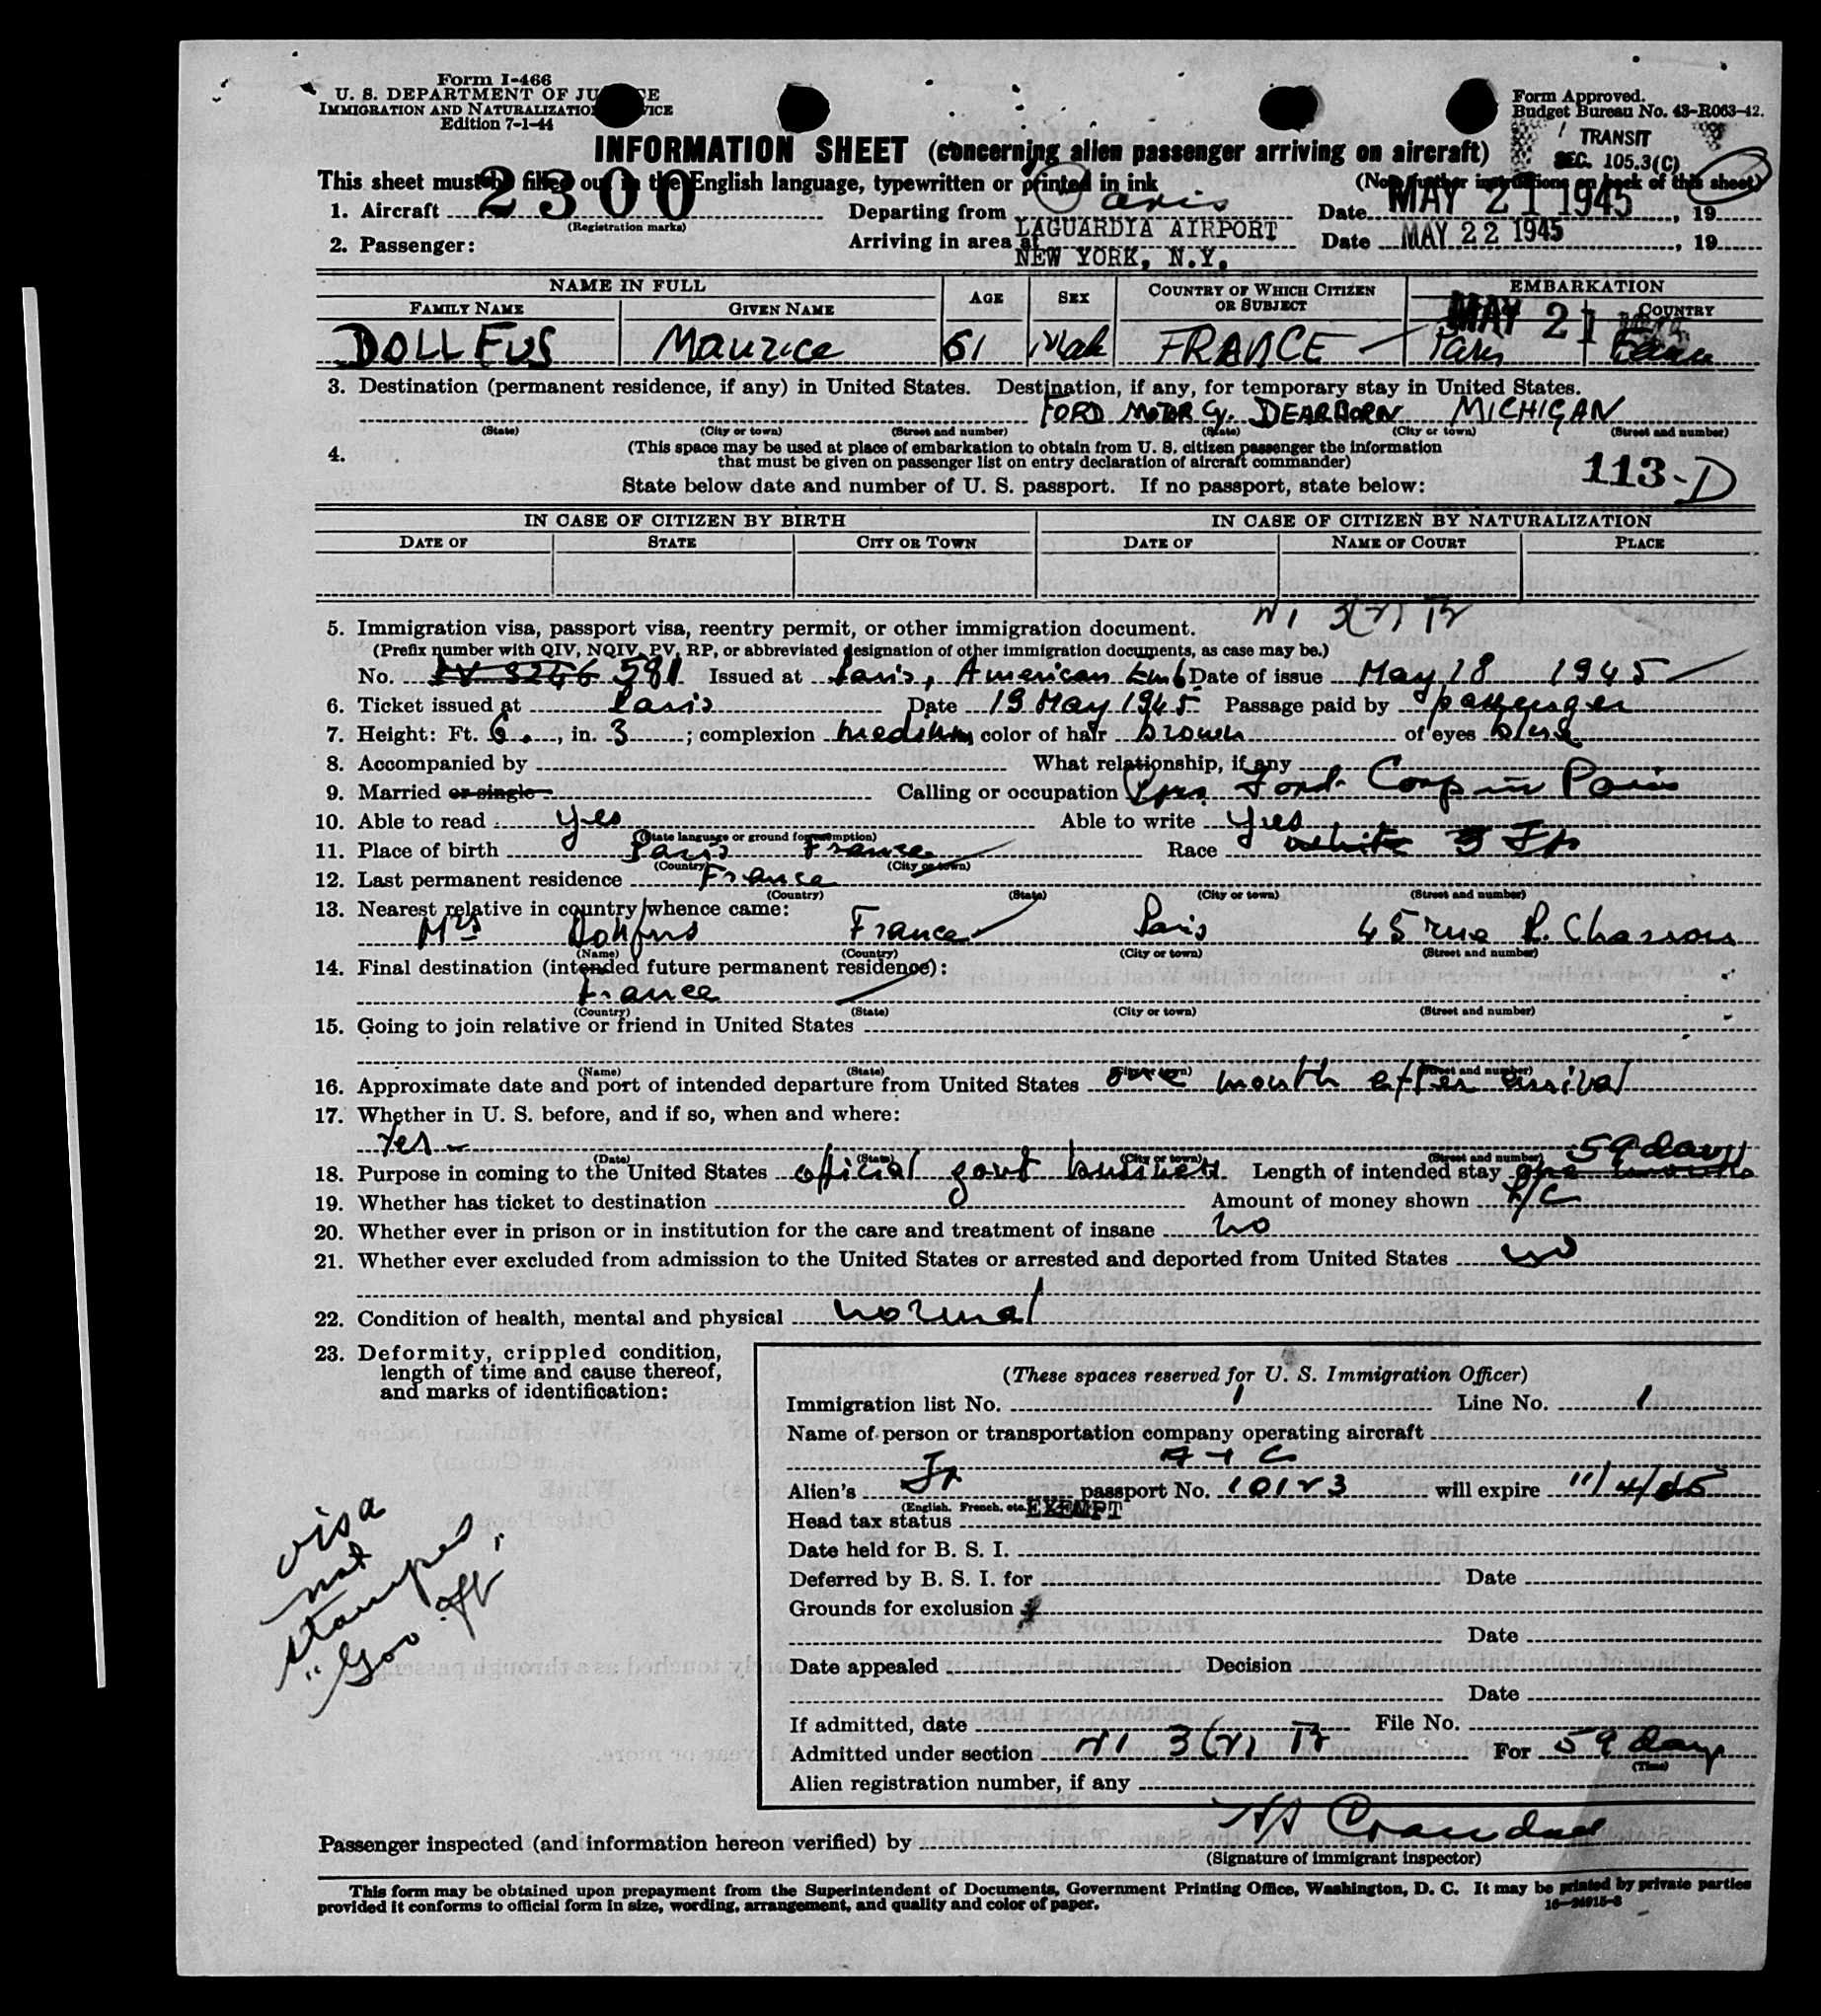 Form I-466
U. S. DEPARTMENT OF JU CE
IMMIGRATION AND NATURALIZATIO VICE
Edition 7-1-44
Form Approved.
Budget Bureau No. 43-R063-42.
TRANSIT
SEC. 105.3(C)
INFORMATION SHEET (concerning alien passenger arriving on aircraft)
This sheet must be filled out in the English language, typewritten or printed in ink (Note further instructions on back of this sheet)
1. Aircraft 2300 Departing from Paris Date MAY 21 1945, 19
(Registration marks)
2. Passenger: Arriving in area at LAGUARDIA AIRPORT NEW YORK, N.Y. Date MAY 22 1945, 19
NAME IN FULL AGE SEX COUNTRY OF WHICH CITIZEN OR SUBJECT EMBARKATION
FAMILY NAME GIVEN NAME MAY 21 COUNTRY
DOLLFUS Maurice 61 Male FRANCE Paris France
3. Destination (permanent residence, if any) in United States. Destination, if any, for temporary stay in United States.
FORD MOTOR Cy. DEARBORN MICHIGAN
(State) (City or town) (Street and number) (State) (City or town) (Street and number)
4. (This space may be used at place of embarkation to obtain from U. S. citizen passenger the information
that must be given on passenger list on entry declaration of aircraft commander)
113-D
State below date and number of U. S. passport. If no passport, state below:
IN CASE OF CITIZEN BY BIRTH IN CASE OF CITIZEN BY NATURALIZATION
DATE OF STATE CITY OR TOWN DATE OF NAME OF COURT PLACE
5. Immigration visa, passport visa, reentry permit, or other immigration document.
(Prefix number with QIV, NQIV, PV, RP, or abbreviated designation of other immigration documents, as case may be.)
No. 591 Issued at Paris, American Emb Date of issue May 18 1945
6. Ticket issued at Paris Date 19 May 1945 Passage paid by passenger
7. Height: Ft. 6, in. 3; complexion medium color of hair brown of eyes blue
8. Accompanied by What relationship, if any
9. Married or single Calling or occupation Ford Corp in Paris
10. Able to read yes Able to write yes
(State language or ground for exemption)
11. Place of birth Paris France Race white Fr
(Country) (City or town)
12. Last permanent residence France
(Country) (State) (City or town) (Street and number)
13. Nearest relative in country whence came:
Mrs Dollfus France Paris 45 rue
(Name) (Country) (City or town) (Street and number)
14. Final destination (intended future permanent residence):
France
(Country) (State) (City or town) (Street and number)
15. Going to join relative or friend in United States
(Name) (State) (City or town) (Street and number)
16. Approximate date and port of intended departure from United States one month after arrival
17. Whether in U. S. before, and if so, when and where:
Yes -
(Date) (State) (City or town) (Street and number)
18. Purpose in coming to the United States official govt business Length of intended stay one month 59 days
19. Whether has ticket to destination Amount of money shown
20. Whether ever in prison or in institution for the care and treatment of insane no
21. Whether ever excluded from admission to the United States or arrested and deported from United States no
22. Condition of health, mental and physical normal
23. Deformity, crippled condition,
length of time and cause thereof,
and marks of identification:
visa
not
stamped
(These spaces reserved for U. S. Immigration Officer)
Immigration list No. 1 Line No. 1
Name of person or transportation company operating aircraft
ATC
Alien's Fr passport No. 10123 will expire 11/4/45
(English, French, etc.)
Head tax status EXEMPT
Date held for B. S. I.
Deferred by B. S. I. for Date
Grounds for exclusion
Date
Date appealed Decision
Date
If admitted, date File No.
Admitted under section 3(2) For 59 days
(Time)
Alien registration number, if any
Passenger inspected (and information hereon verified) by
(Signature of immigrant inspector)
This form may be obtained upon prepayment from the Superintendent of Documents, Government Printing Office, Washington, D. C. It may be printed by private parties
provided it conforms to official form in size, wording, arrangement, and quality and color of paper.